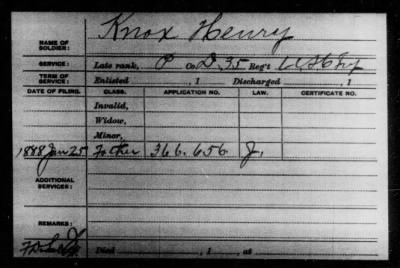 NAME OF SOLDIER: Knox Henry
SERVICE: Late rank, P Co. D, 35 Reg't U.S.C. Inf
TERM OF SERVICE: Enlisted , 1 Discharged , 1
DATE OF FILING. CLASS. APPLICATION NO. LAW. CERTIFICATE NO.
Invalid,
Widow,
Minor,
1888 Jan 25 Father 366.656 J.
ADDITIONAL SERVICES:
REMARKS:
Died , 1 , at